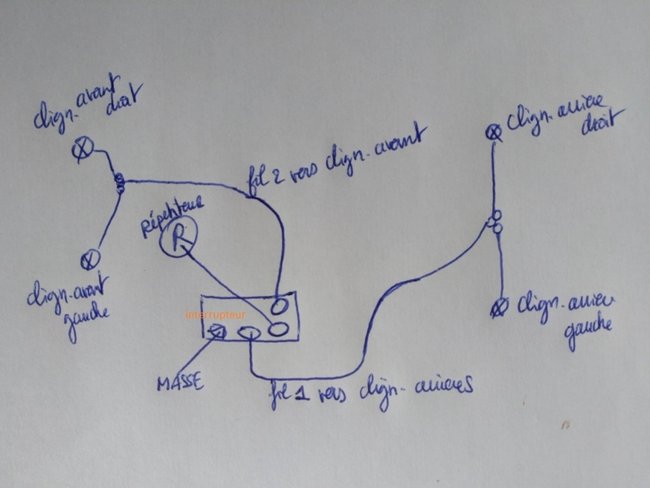 clign. avant
droit
clign. arrière
droit
fil 2 vers clign. avant
Répétiteur
R
clign. avant
gauche
interrupteur
clign. arrière
gauche
MASSE
fil 1 vers clign. arrières